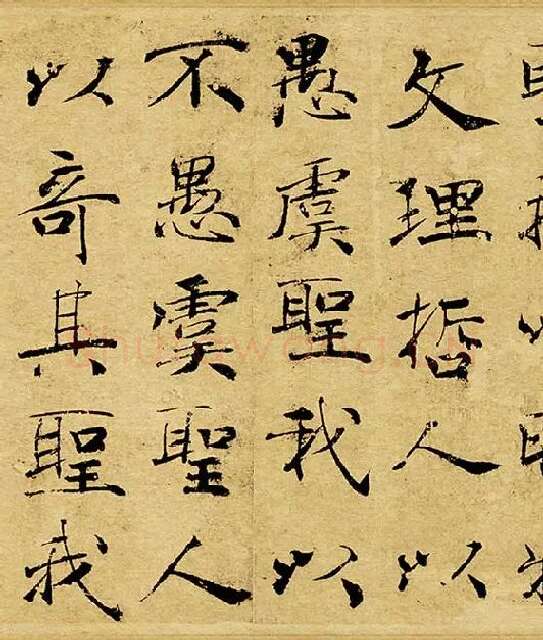 文理哲人以
愚虞聖我以
不愚虞聖人
以奇其聖我